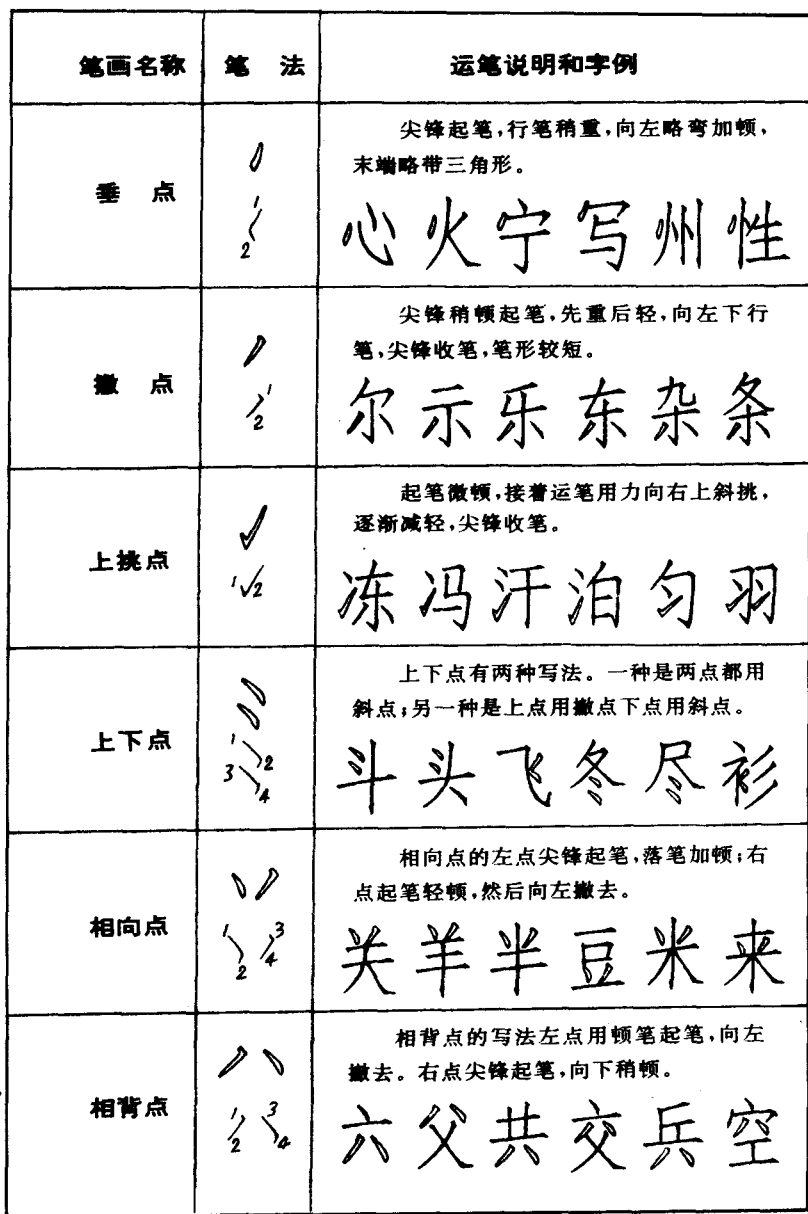 笔画名称 笔 法 运笔说明和字例
垂 点
1
2
尖锋起笔，行笔稍重，向左略弯加顿，
末端略带三角形。
心火宁写州性
撇 点
1
2
尖锋稍顿起笔，先重后轻，向左下行
笔，尖锋收笔，笔形较短。
尔示乐东杂条
上挑点
1 2
起笔微顿，接着运笔用力向右上斜挑，
逐渐减轻，尖锋收笔。
冻冯汗泊匀羽
上下点
1 2
3 4
上下点有两种写法。一种是两点都用
斜点；另一种是上点用撇点下点用斜点。
斗头飞冬尽衫
相向点
1 3
2 4
相向点的左点尖锋起笔，落笔加顿；右
点起笔轻顿，然后向左撇去。
关羊半豆米来
相背点
1 3
2 4
相背点的写法左点用顿笔起笔，向左
撇去。右点尖锋起笔，向下稍顿。
六父共交兵空